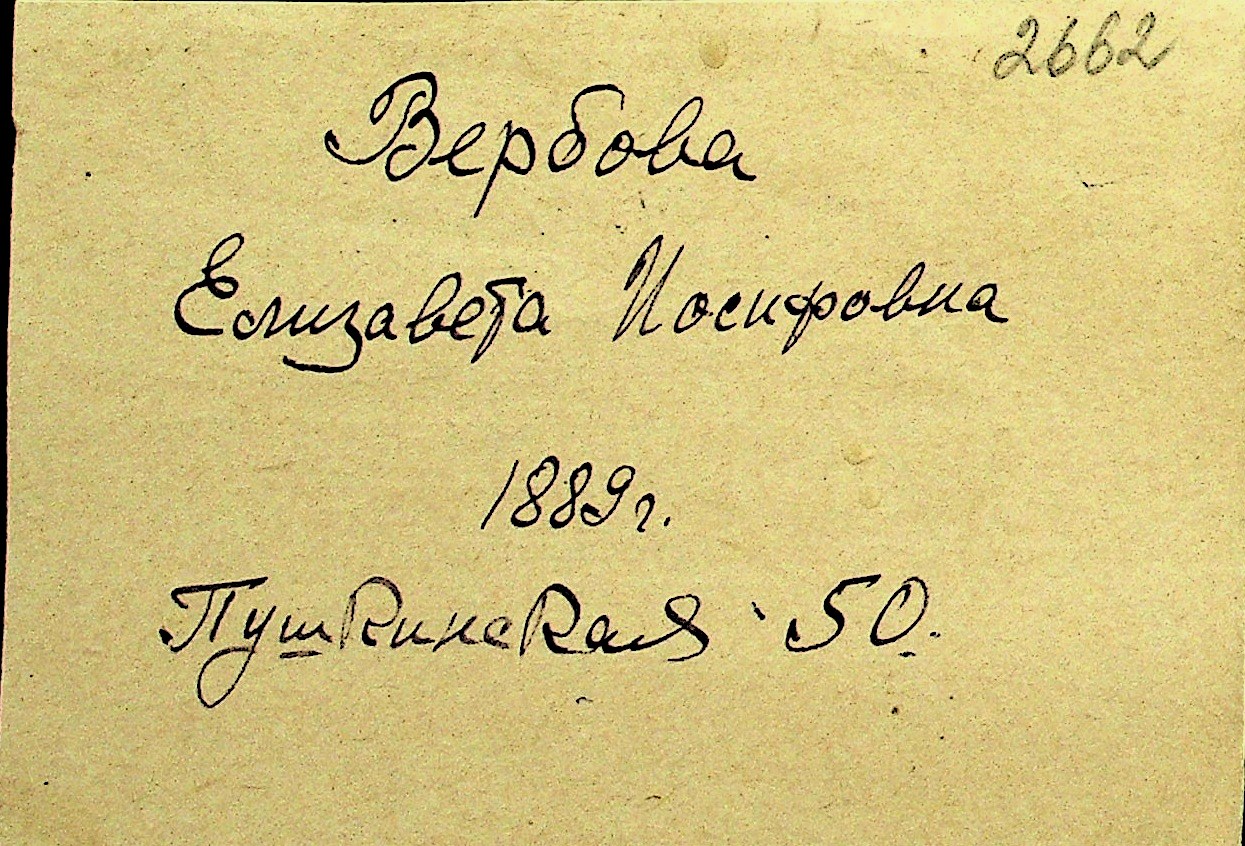 2662
Вербова
Елизавета Иосифовна
1889г.
Пушкинская 50.